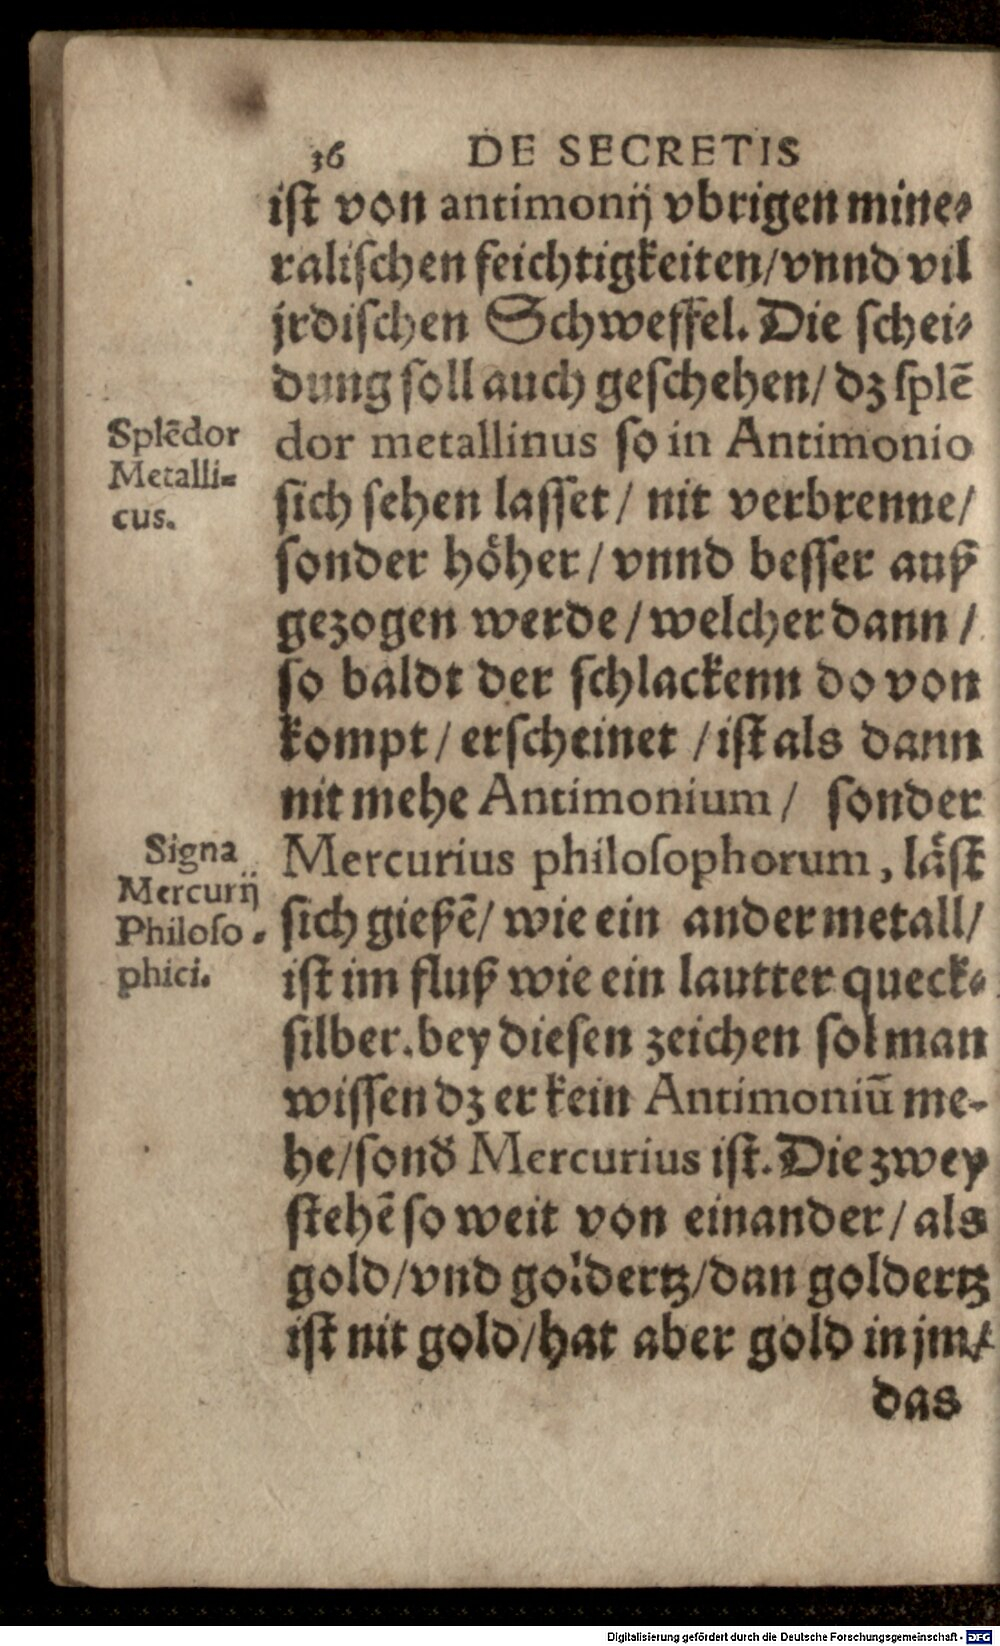 36 DE SECRETIS
ist von antimonij vbrigen mine⸗
ralischen feichtigkeiten/vnnd vil
jrdischen Schweffel. Die schei⸗
dung soll auch geschehen/ dz splē
dor metallinus so in Antimonio
sich sehen lasset/ nit verbrenne/
sonder höher/ vnnd besser auß
gezogen werde/ welcher dann/
so baldt der schlackenn do von
kompt/ erscheinet /ist als dann
nit mehe Antimonium/ sonder
Mercurius philosophorum, läst
sich gießē/ wie ein ander metall/
ist im fluß wie ein lautter queck⸗
silber. bey diesen zeichen sol man
wissen dz er kein Antimoniū me-
he/sond' Mercurius ist. Die zwey
stehē so weit von einander/ als
gold/vnd goldertz/dan goldertz
ist nit gold/hat aber gold in jm/
das
Splēdor
Metalli⸗
cus.
Signa
Mercurij
Philoso-
phici.
Digitalisierung gefördert durch die Deutsche Forschungsgemeinschaft - DFG